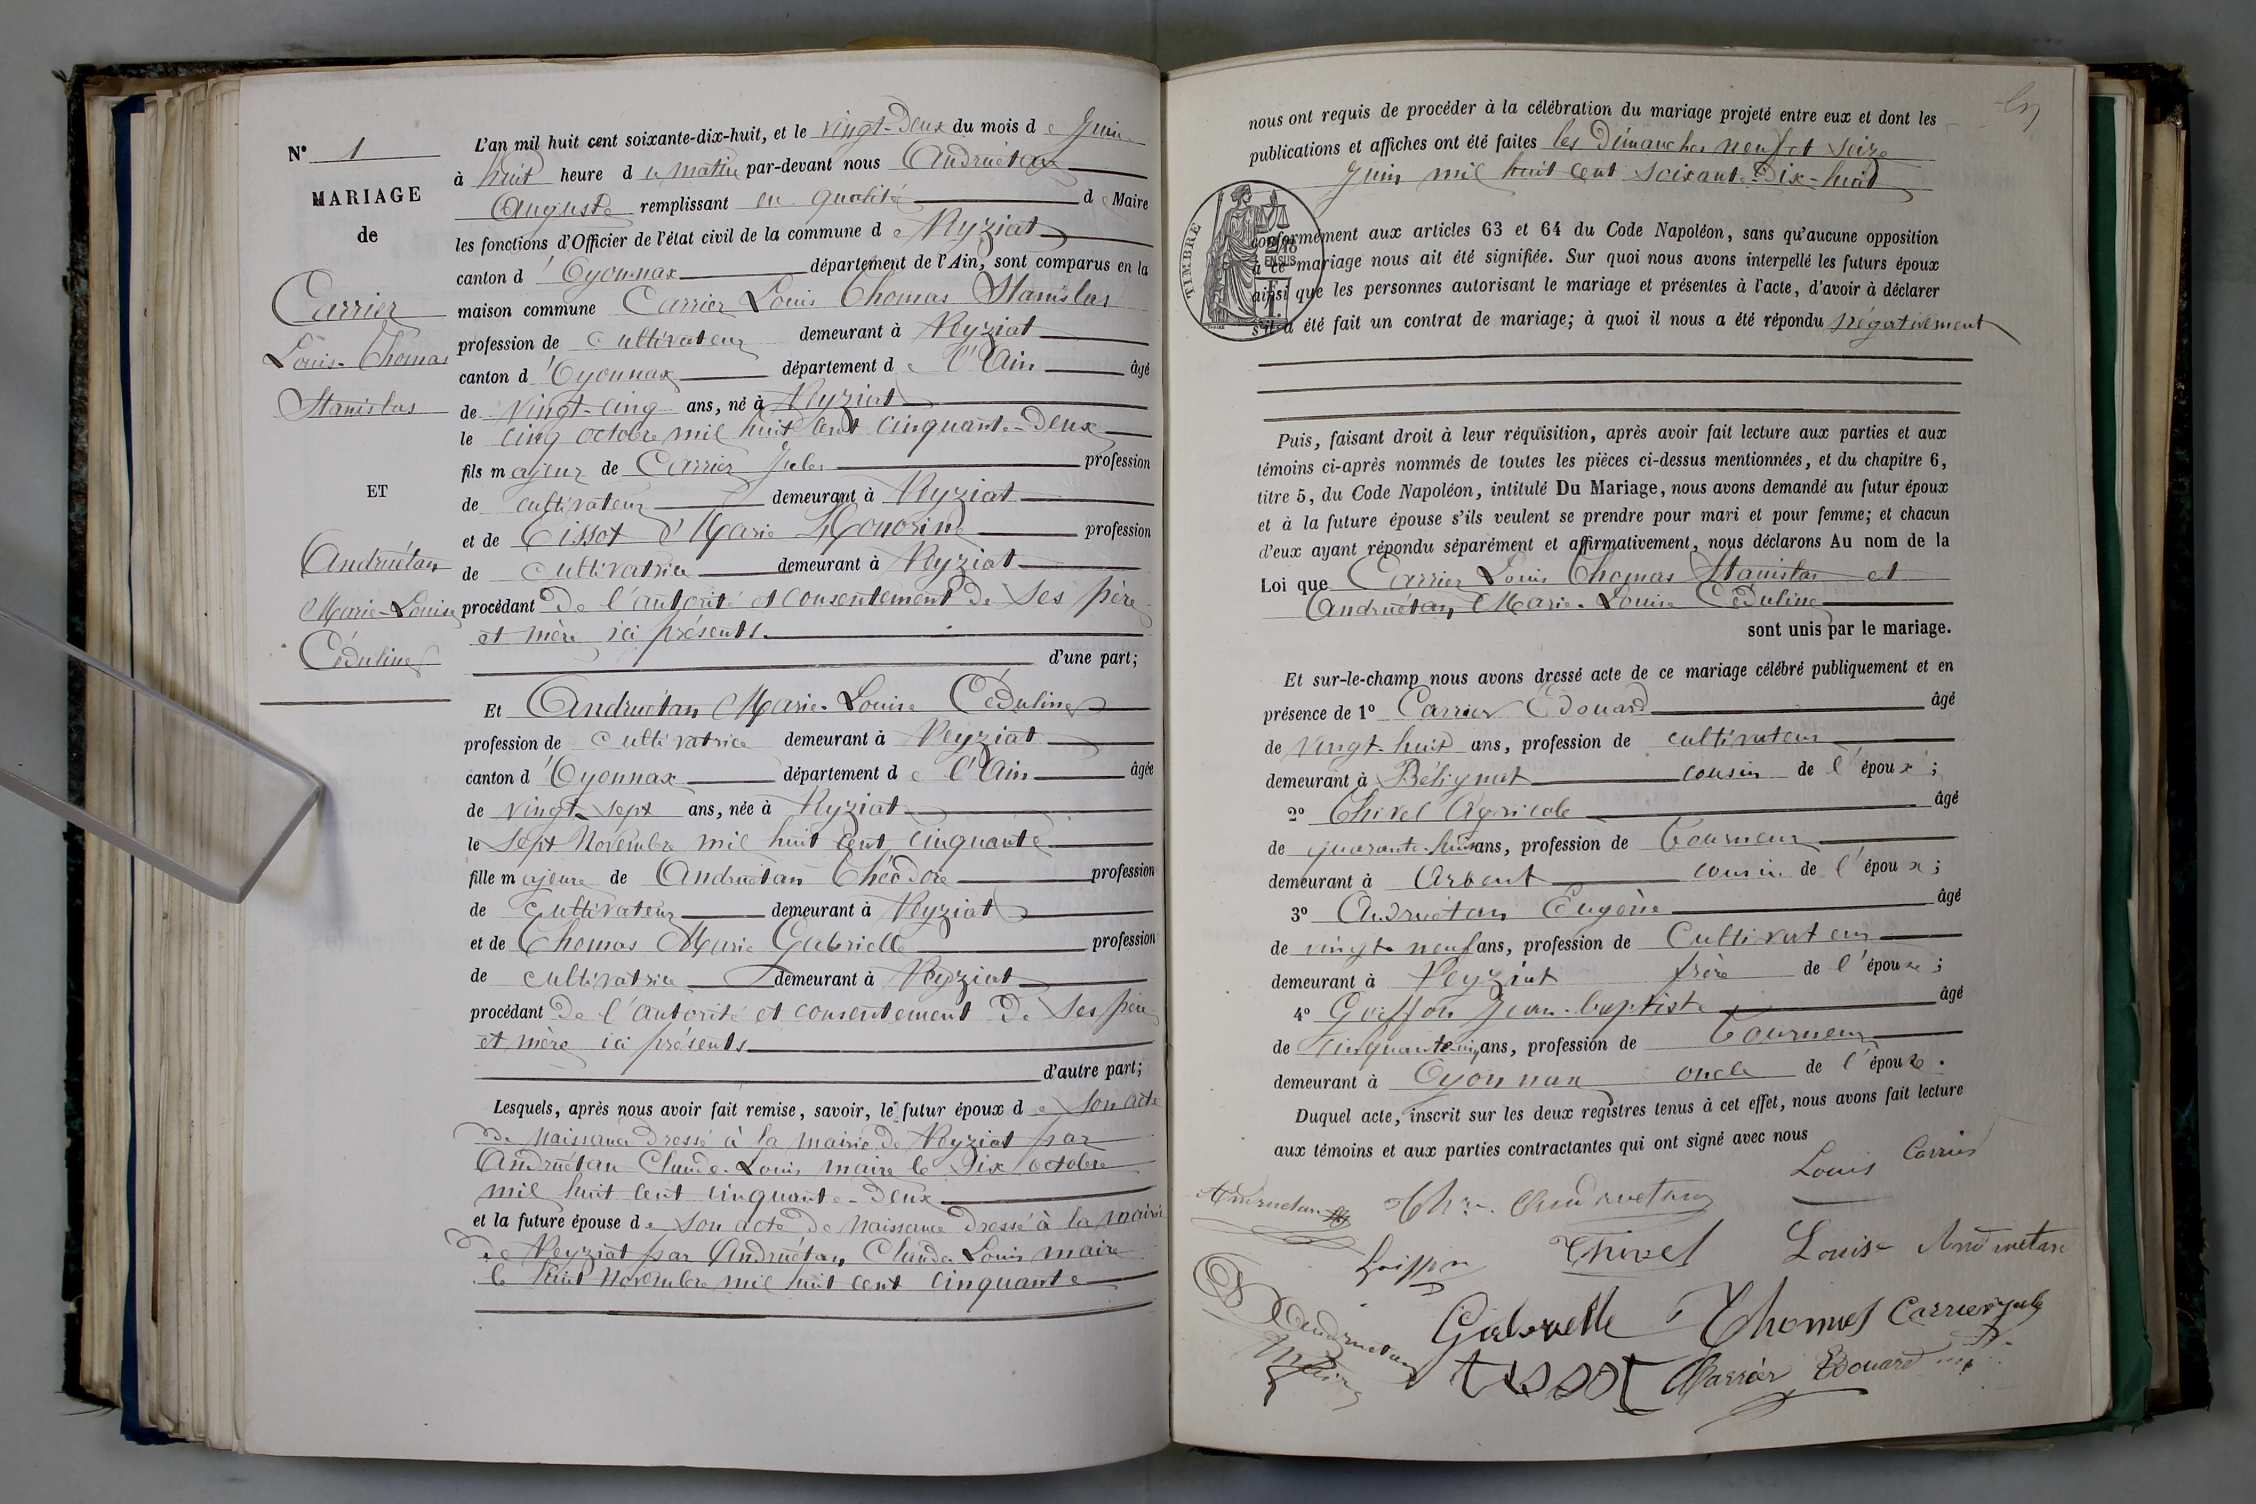 N° 1
MARIAGE
de
Carrier
Louis-Thomas
Stanislas
ET
Andruétan
Marie-Louise
Céduline
L'an mil huit cent soixante-dix-huit, et le vingt-deux du mois de Juin
à huit heure du matin par-devant nous Andruétan
Auguste remplissant en qualité de Maire
les fonctions d'Officier de l'état civil de la commune de Veyziat
canton d'Oyonnax département de l'Ain, sont comparus en la
maison commune Carrier Louis Thomas Stanislas
profession de cultivateur demeurant à Veyziat
canton d'Oyonnax département de l'Ain âgé
de vingt-cinq ans, né à Veyziat
le cinq octobre mil huit cent cinquante-deux
fils majeur de Carrier Jules profession
de cultivateur demeurant à Veyziat
et de Tissot Marie Honorine profession
de cultivatrice demeurant à Veyziat
procédant de l'autorité et consentement de ses père
et mère ici présents
d'une part;
Et Andruétan Marie-Louise Céduline
profession de cultivatrice demeurant à Veyziat
canton d'Oyonnax département de l'Ain âgée
de vingt-sept ans, née à Veyziat
le sept Novembre mil huit cent cinquante
fille majeure de Andruétan Théodore profession
de cultivateur demeurant à Veyziat
et de Thomas Marie Gabrielle profession
de cultivatrice demeurant à Veyziat
procédant de l'autorité et consentement de ses père
et mère ici présents
d'autre part;
Lesquels, après nous avoir fait remise, savoir, le futur époux de son acte
de naissance dressé à la mairie de Veyziat par
Andruétan Claude-Louis maire le dix octobre
mil huit cent cinquante-deux
et la future épouse de son acte de naissance dressé à la mairie
de Veyziat par Andruétan Claude Louis maire
le huit novembre mil huit cent cinquante
nous ont requis de procéder à la célébration du mariage projeté entre eux et dont les
publications et affiches ont été faites les Dimanches neuf et seize
Juin mil huit cent soixante-Dix-huit
TIMBRE
conformément aux articles 63 et 64 du Code Napoléon, sans qu'aucune opposition
à ce mariage nous ait été signifiée. Sur quoi nous avons interpellé les futurs époux
ainsi que les personnes autorisant le mariage et présentes à l'acte, d'avoir à déclarer
s'il a été fait un contrat de mariage; à quoi il nous a été répondu négativement
2/10
EN SUS
Puis, faisant droit à leur réquisition, après avoir fait lecture aux parties et aux
témoins ci-après nommés de toutes les pièces ci-dessus mentionnées, et du chapitre 6,
titre 5, du Code Napoléon, intitulé Du Mariage, nous avons demandé au futur époux
et à la future épouse s'ils veulent se prendre pour mari et pour femme; et chacun
d'eux ayant répondu séparément et affirmativement, nous déclarons Au nom de la
Loi que Carrier Louis Thomas Stanislas et
Andruétan Marie-Louise Céduline
sont unis par le mariage.
Et sur-le-champ nous avons dressé acte de ce mariage célébré publiquement et en
présence de 1° Carrier Édouard âgé
de vingt-huit ans, profession de cultivateur
demeurant à Bélignat cousin de l'époux;
2° Thivel Agricole âgé
de quarante-huit ans, profession de Tourneur
demeurant à Arbent cousin de l'époux;
3° Andruétan Eugène âgé
de vingt-neuf ans, profession de Cultivateur
demeurant à Veyziat frère de l'épouse;
4° Goiffon Jean-baptiste âgé
de cinquante-cinq ans, profession de Tourneur
demeurant à Oyonnax oncle de l'épouse.
Duquel acte, inscrit sur les deux registres tenus à cet effet, nous avons fait lecture
aux témoins et aux parties contractantes qui ont signé avec nous
Louis Carrier
Andruetan Thre. Andruetan
Goiffon Thivel Louise Andruétan
Andruetan Gabrielle Thomas Carrier Jules
Maire tissot Carrier Edouard